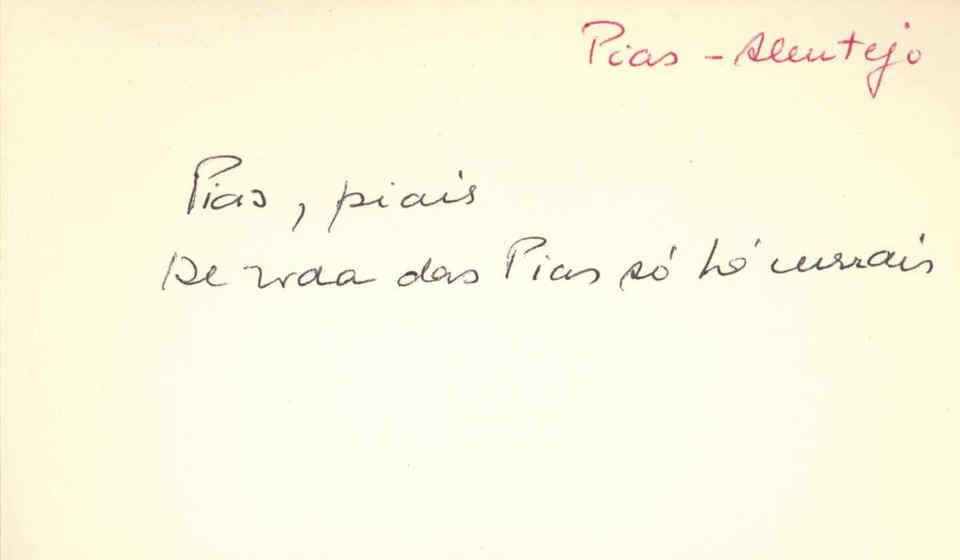 Pias - Alentejo
Pias, piais
De roda das Pias só há currais